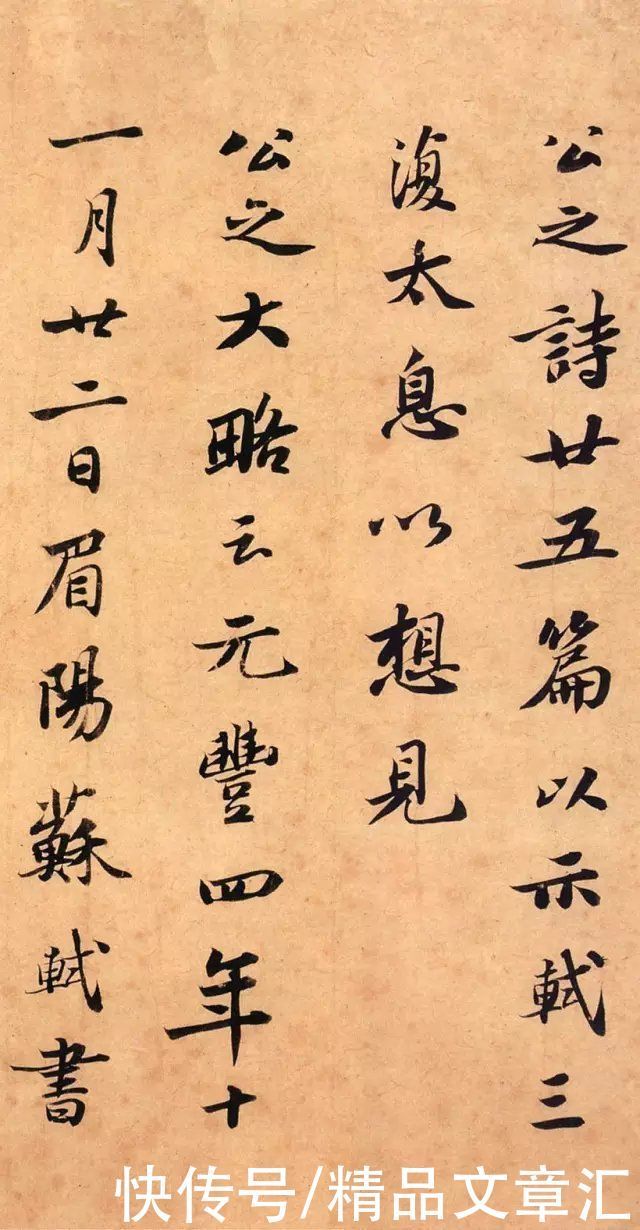 公之詩廿五篇以示軾三
復太息以想見
公之大略云元豐四年十
一月廿二日眉陽蘇軾書
快传号/精品文章汇